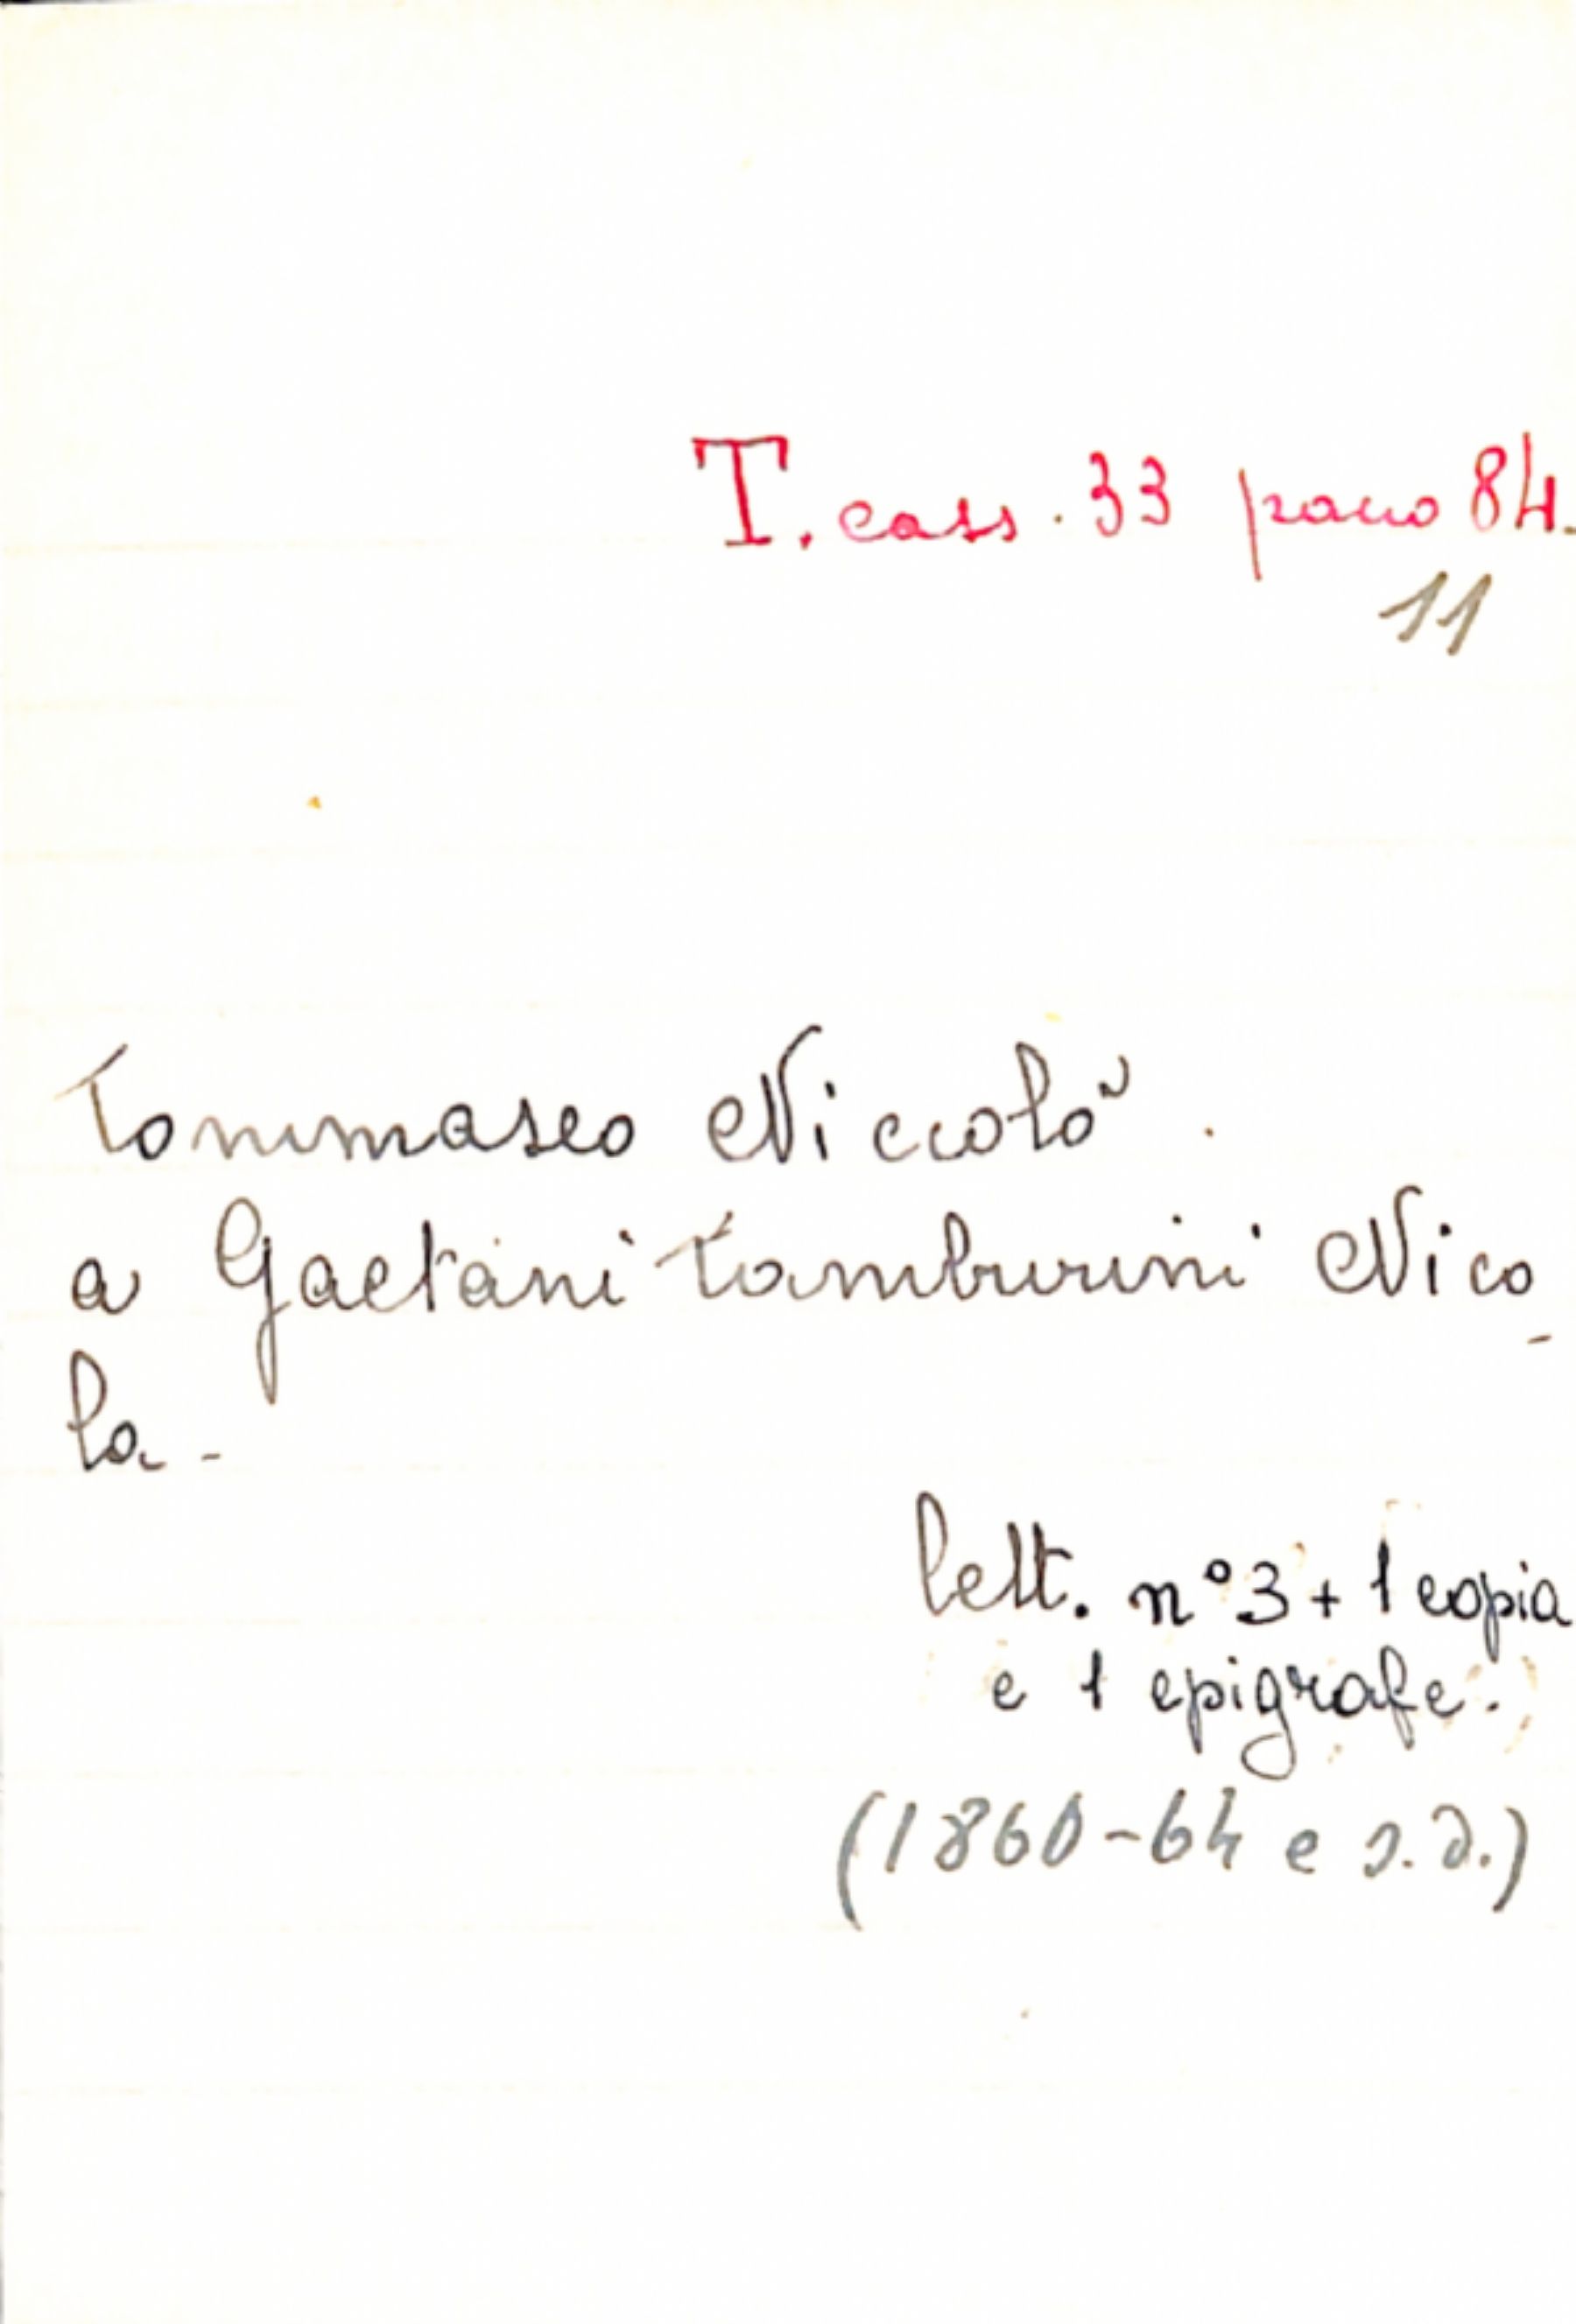 T. cass. 33 pacco 84.
11
Tommaseo Niccolò.
a Gaetani Tamburini Nico-
la-
lett. n° 3 + 1 copia
e 1 epigrafe.
(1860-64 e s.d.)